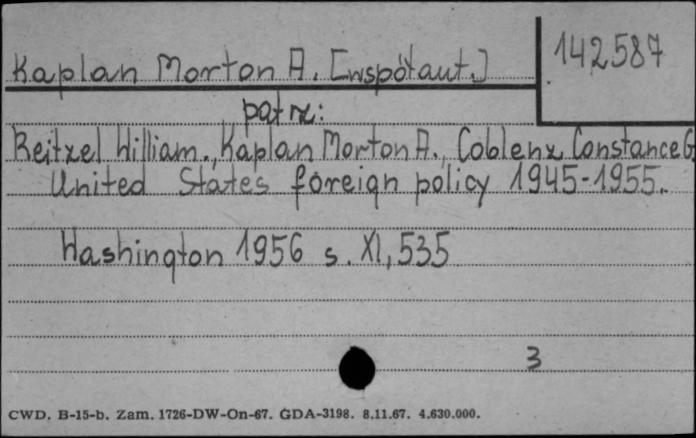 142587
Kaplan Morton A. [współaut.]
patrz:
Reitzel William., Kaplan Morton A., Coblenz Constance G
United States foreign policy 1945-1955.
Washington 1956 s. XI, 535
3
CWD. B-15-b. Zam. 1726-DW-On-67. GDA-3198. 8.11.67. 4.630.000.